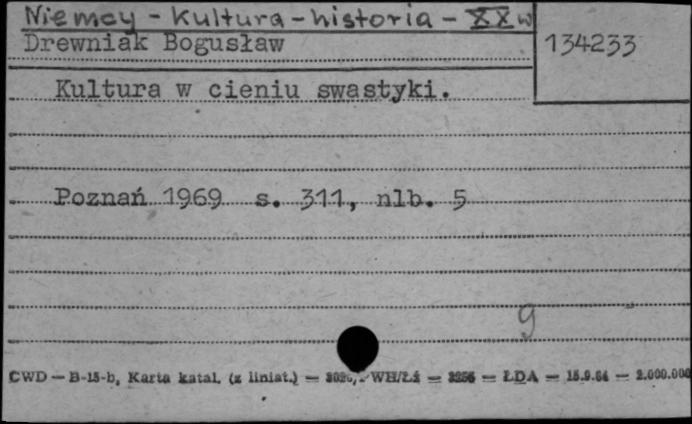 Niemcy - kultura - historia - XX w
Drewniak Bogusław
134233
Kultura w cieniu swastyki.
Poznań 1969 s. 311, nlb. 5
9
CWD — B-15-b, Karta katal. (z liniat.) — WH/Łż — 3256 — ŁDA — 15.9.64 — 2.000.000